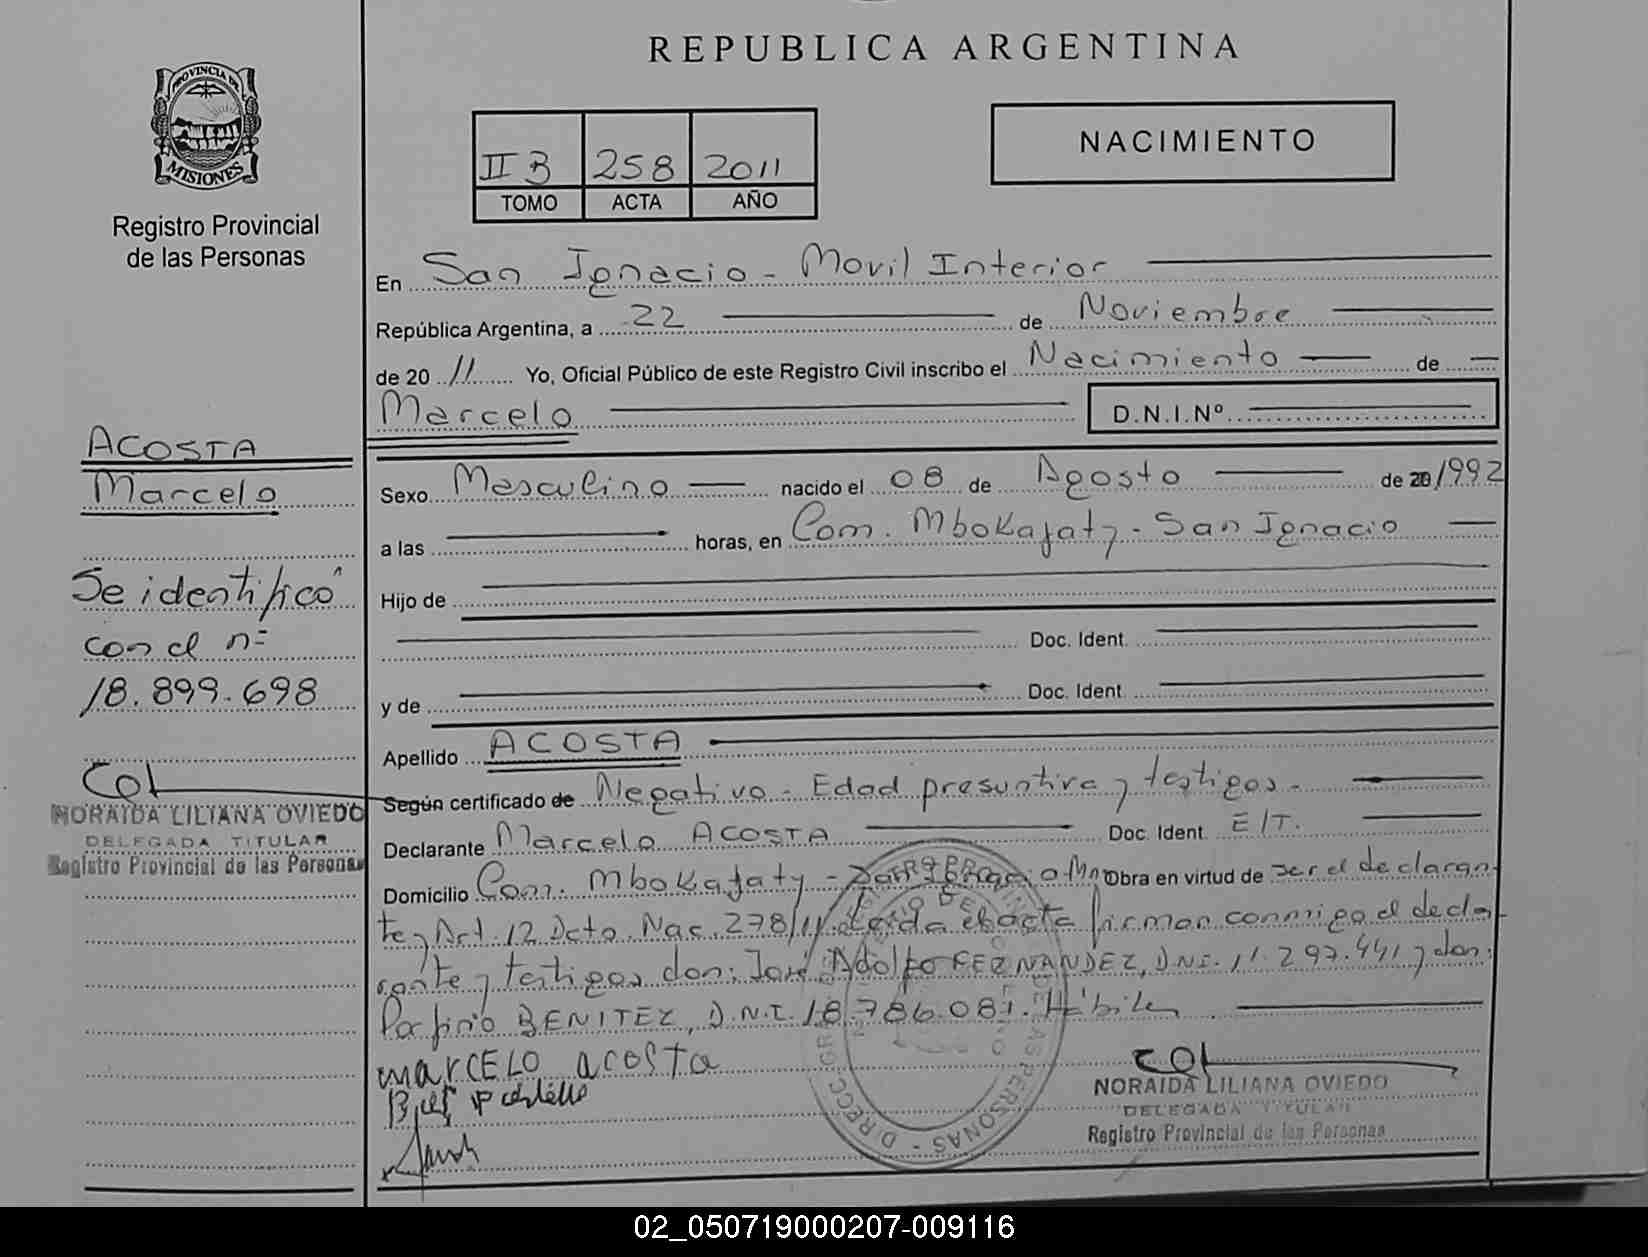 REPUBLICA ARGENTINA
PROVINCIA DE
MISIONES
Registro Provincial
de las Personas
II B 258 2011
TOMO ACTA AÑO
NACIMIENTO
En San Ignacio - Movil Interior
República Argentina, a 22 de Noviembre
de 2011 Yo, Oficial Público de este Registro Civil inscribo el Nacimiento de
Marcelo D.N.I.Nº
ACOSTA
Marcelo
Se identificó
con el nº
18.899.698
NORAIDA LILIANA OVIEDO
DELEGADA TITULAR
Registro Provincial de las Personas
Sexo Masculino nacido el 08 de Agosto de 20 1992
a las horas, en Com. Mbokajaty - San Ignacio
Hijo de
Doc. Ident.
y de Doc. Ident.
Apellido ACOSTA
Según certificado de Negativo - Edad presuntiva y testigos.-
Declarante Marcelo ACOSTA Doc. Ident. E/T.
Domicilio Com. Mbokajaty - San Ignacio Mnes Obra en virtud de ser el declaran-
te y Art. 12 Dcto. Nac. 278/11. Leida el acta firman conmigo el decla-
rante y testigos don: José Adolfo FERNANDEZ, D.N.I. 11.297.441 y don:
Porfirio BENITEZ, D.N.I. 18.786.081. Hábiles
MARCELO ACOSTA
NORAIDA LILIANA OVIEDO
DELEGADA TITULAR
Registro Provincial de las Personas
02_050719000207-009116